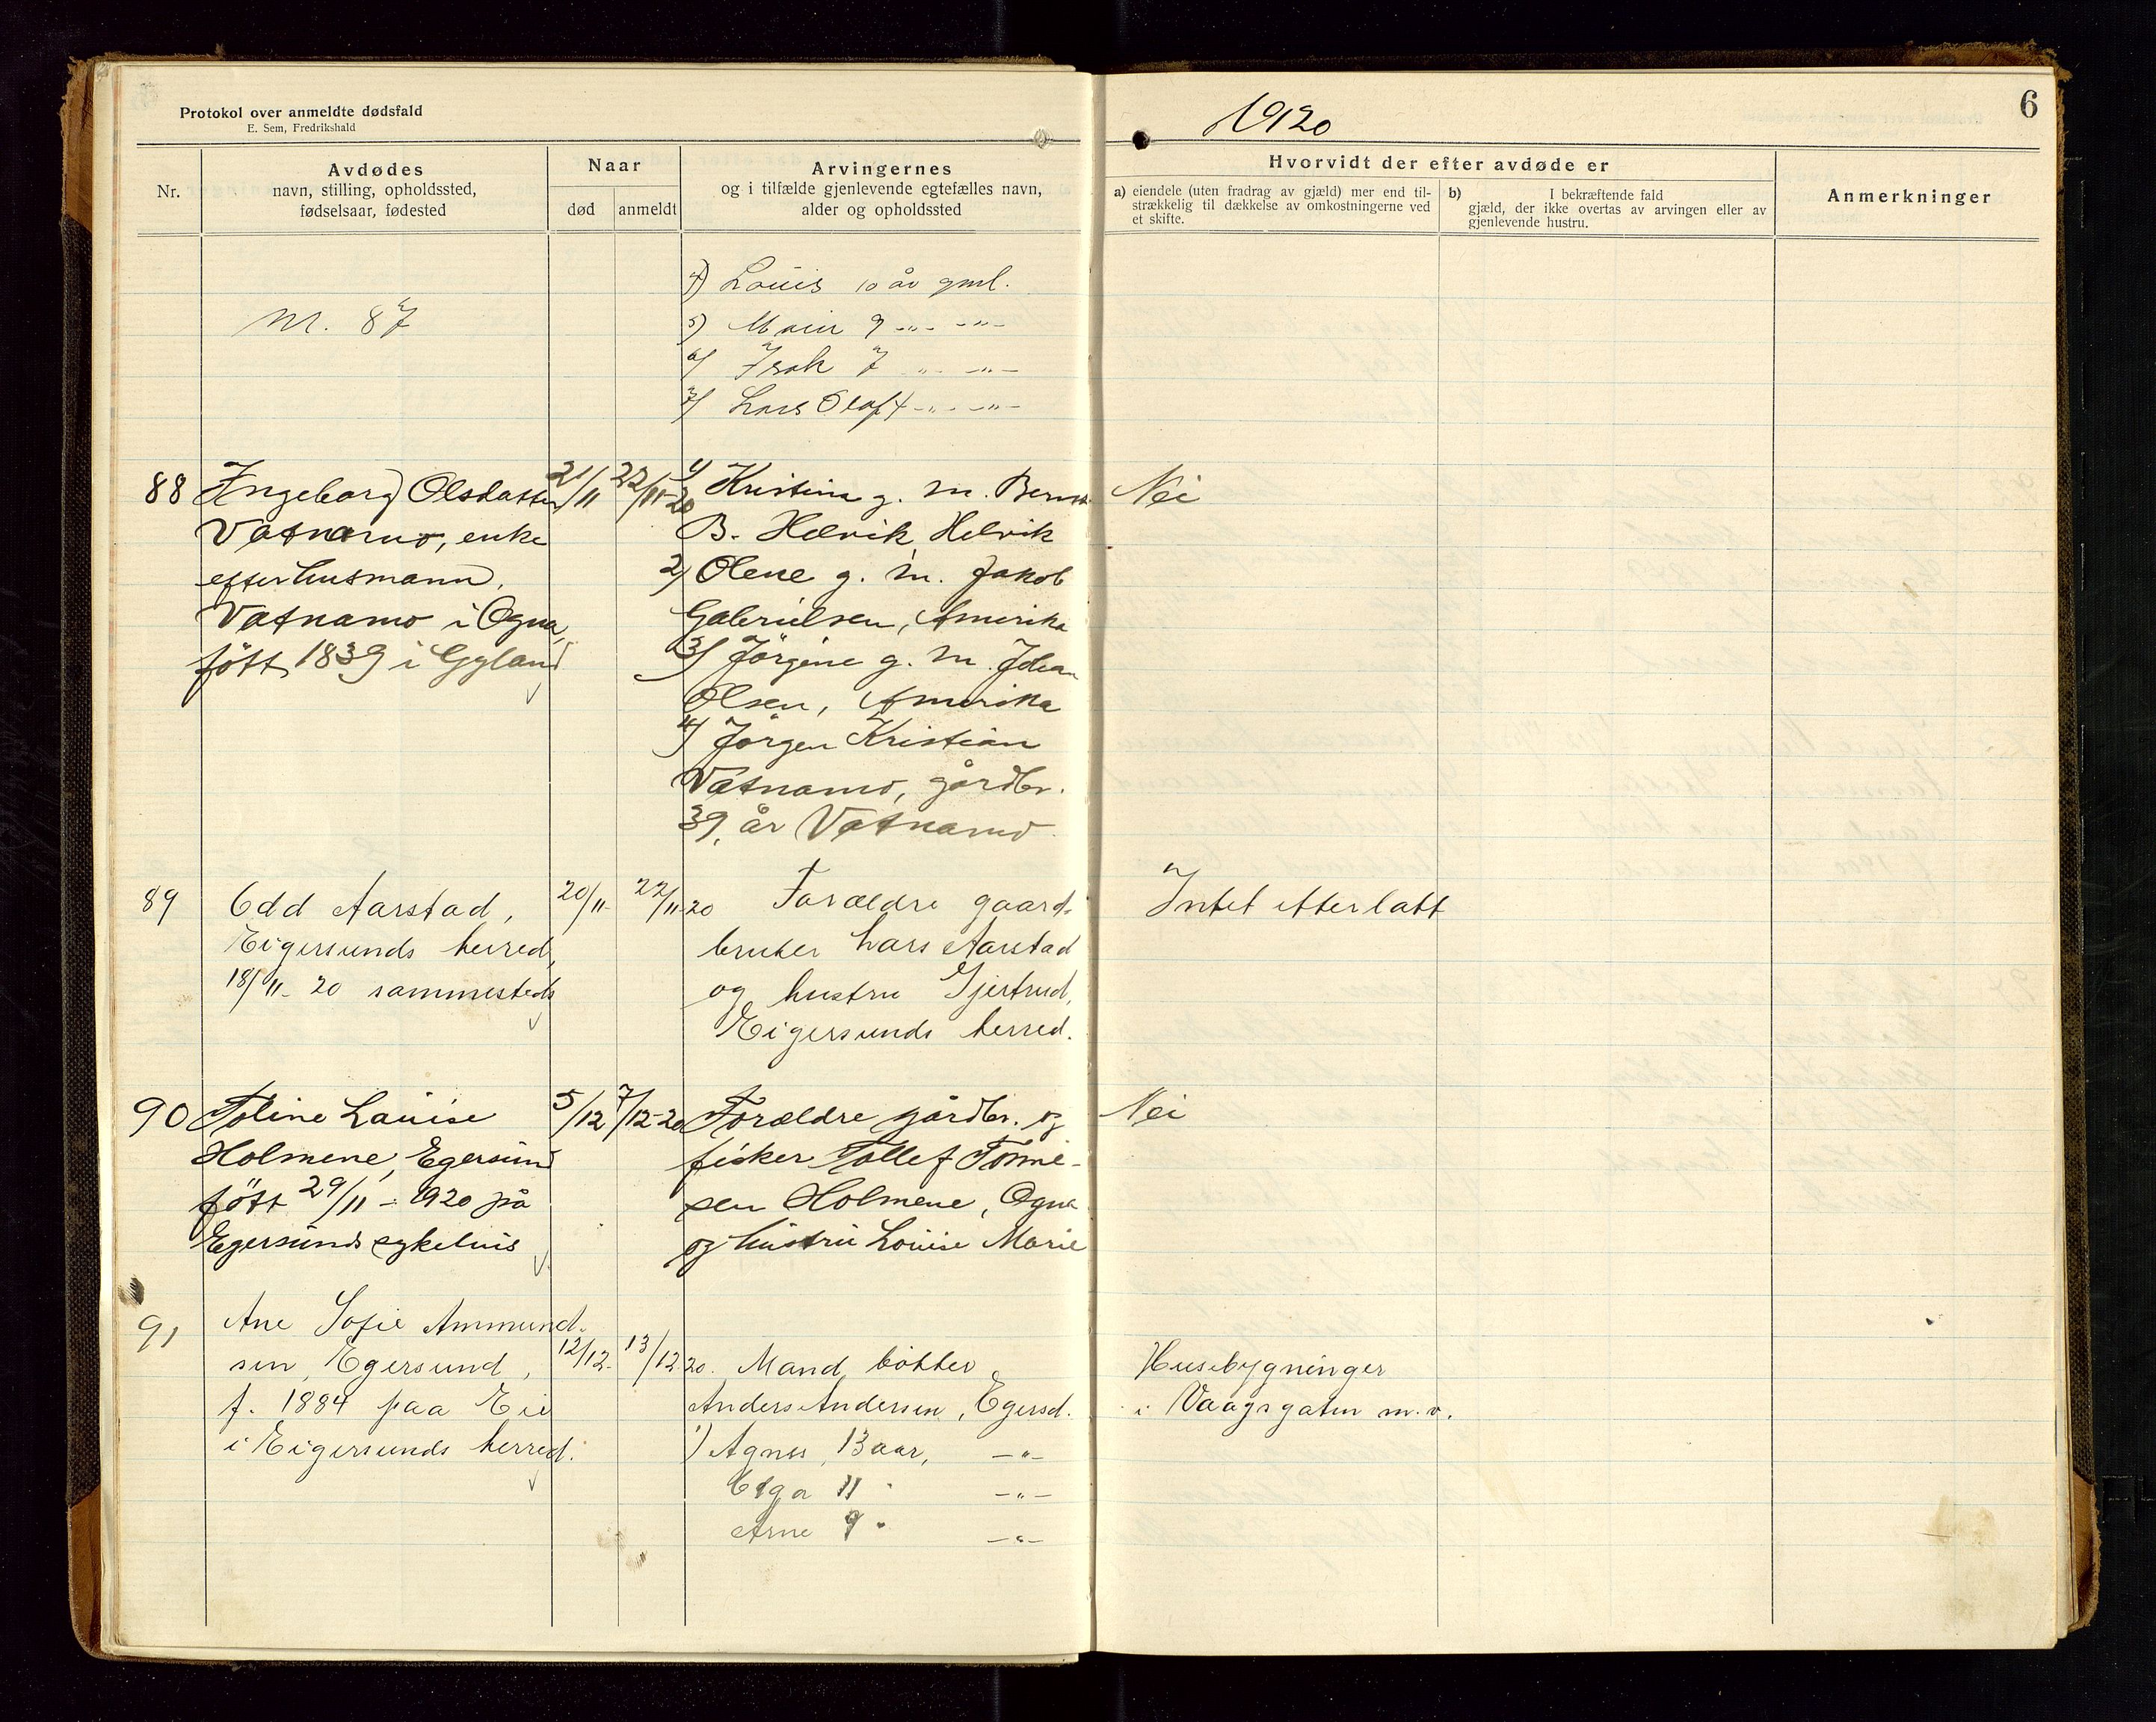 Protokol over anmeldte dødsfald
E. Sem, Fredrikshald
1920
6
Nr.
Avdødes
navn, stilling, opholdssted,
fødselsaar, fødested
Naar
død
anmeldt
Arvingernes
og i tilfælde gjenlevende egtefælles navn,
alder og opholdssted
Hvorvidt der efter avdøde er
a) eiendele (uten fradrag av gjæld) mer end til-
strækkelig til dækkelse av omkostningerne ved
et skifte.
b) I bekræftende fald
gjæld, der ikke overtas av arvingen eller av
gjenlevende hustru.
Anmerkninger
Nr. 87
4) Louis 10 år gml.
5) 9 -"- -"-
6) Isak 7 " -"-
7) Lars Olaf 4 -"- -"-
88
Ingeborg Olsdatter
Vatnamo, enke
efter husmann,
Vatnamo i Ogna,
fött 1839 i Gyland
21/11
22/11-20
1) Kristine g. m.
B. Helvik, Helvik
2) Olene g. m. Jakob
Gabrielsen, Amerika
3) Jörgine g. m. Johan
Olsen, Amerika
4) Jörgen Kristian
Vatnamo, gårdbr.
39 år Vatnamo.
Nei
89
Odd Aarstad,
Eigersunds herred,
18/11-20 sammesteds
20/11-
22/11-20
Forældre gaard-
bruker Lars Aarstad
og hustru Gjertrud,
Eigersunds herred.
Intet efterlatt
90
Toline Louise
Holmene, Egersund
fött 29/11-1920 på
Egersunds sykehus
5/12
7/12-20
Forældre gårdbr. og
fisker Tollef Tönne-
sen Holmene, Ogna
og hustru Louise Marie
Nei
91
Ane Sofie Ammund-
sen, Egersund,
f. 1884 paa Eie
i Eigersunds herred.
12/12-
13/12 20.
Mand, bøkker
Anders Andersen, Egersd.
1) Agnes, 13 aar, -"-
Olga 11 " -"-
Arne 9 " -"-
Husebygninger
i Vaagsgaten m.v.